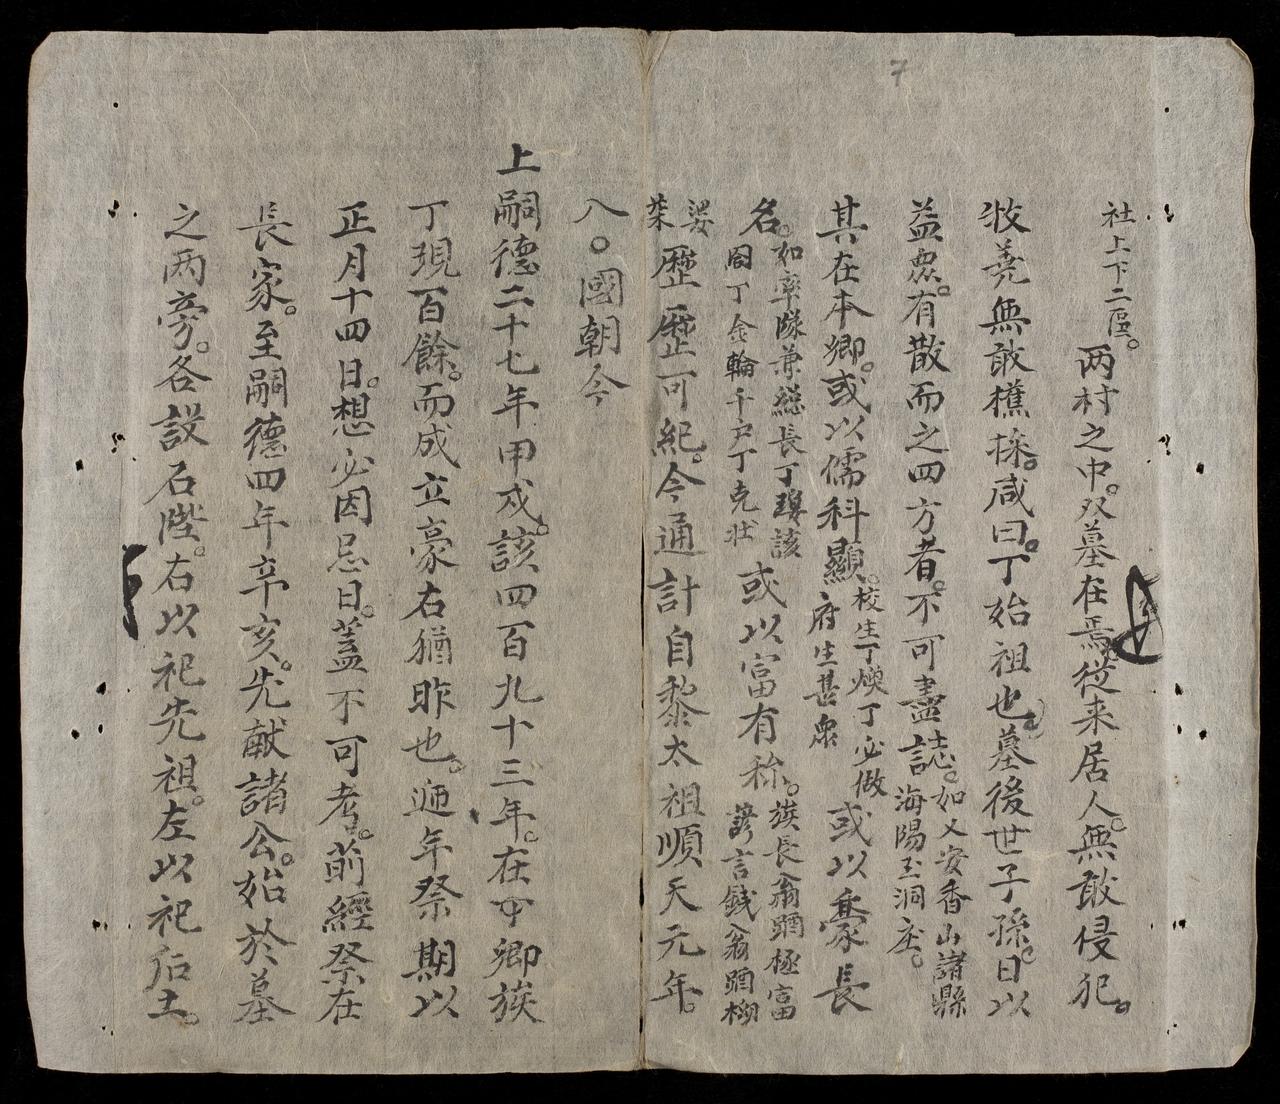 7
社上下二區。
两村之中。双墓在焉。從来居人。無敢侵犯。
牧蕘無敢樵採。咸曰。丁始祖也。墓後世子孫。日以
益衆。有散而之四方者。不可盡誌。如乂安香山諸縣
海陽玉洞庄。
其在本鄉。或以儒科顯。校生丁煥丁必做
府生甚衆
或以豪長
名。如率隊兼総長丁瓊該
閣丁金輪千戸丁克壯
或以富有称。族長翁𦓅極富
諺言錢翁𦓅柳
婆
菜
歷歷可紀。今通計自黎太祖順天元年。
八。國朝今
上嗣德二十七年甲戍。該四百九十三年。在中鄉族
丁現百餘。而成立豪右猶昨也。遞年祭期以
正月十四日。想必因忌日。蓋不可考。前經祭在
長家。至嗣德四年辛亥。先献諸公。始於墓
之两旁。各設石陛。右以祀先祖。左以祀后土。